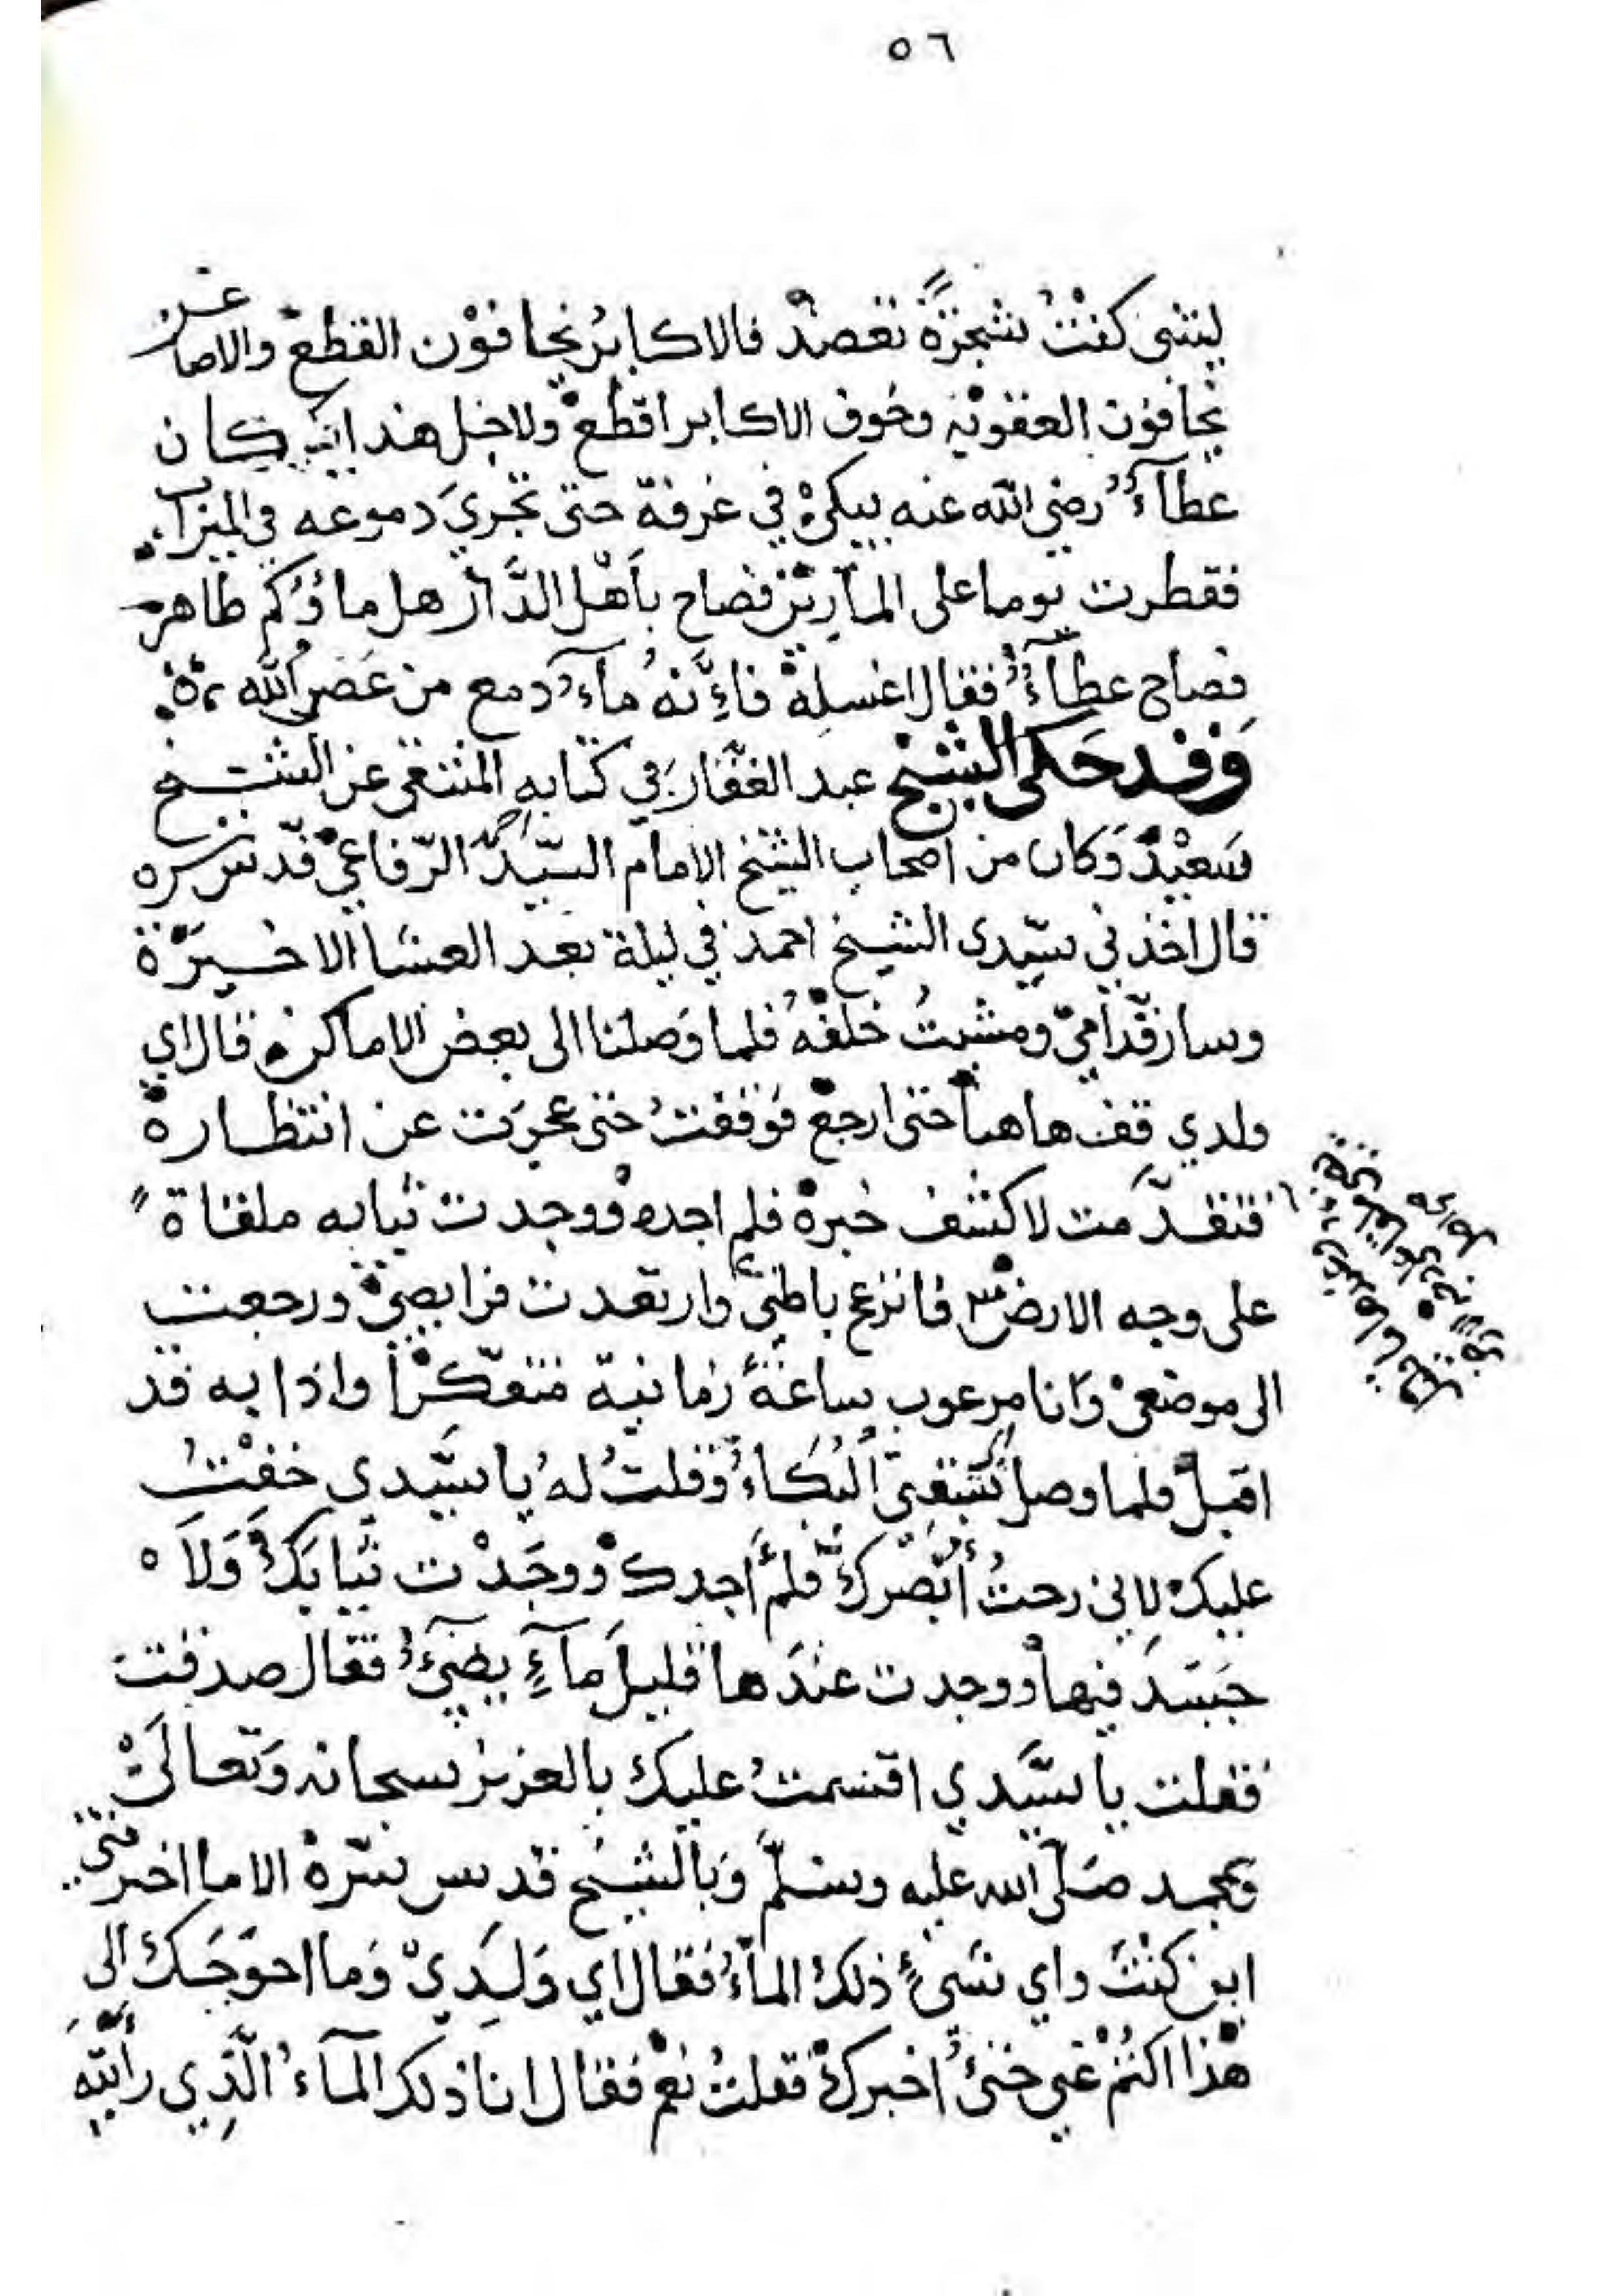 ٥٦
ليتنى كنْتُ شجَرَةً تعضدْ فالاكابرُ يخافوْن القطعْ والاصاغر
يخافون العقوبة وخوف الاكابر اقطعْ ولاجل هذا انه كان
عطآءٌ رضى الله عنه يبكىْ في غرفة حتى تجريَ دموعه في الميزاب
فقطرت يوما على المآرِيْن فصاح يآهْل الدَّار هل ماؤكم طاهر
فصاح عطآءٌ فقال اغسلهْ فاِنَّهُ مآءُ دمع من عَصَى الله
وَقد حَكى الشيْخ عبد الغفّار في كتابه المنتقى عن الشيخ
سَعيْدْ وَكان من اصحاب الشيخ الامام السيّد احمد الرّفاعيْ قدّس سره
قال اخذني سيّدى الشيخ احمد في ليلة بعد العشا الاخيرَة
وسار قدّامىْ ومشيتُ خلفْهُ فلما وَصلنا الى بعض الاماكن قال اي
ولدي قف هاهنا حتى ارجعْ فوَقفتُ حتى عجزت عن انتظاره
فتقدَّمت لاكشف خبرهْ فلم اجدهْ ووجدت ثيابه ملقاة
على وجه الارض فانزعج باطنىْ وارتعدت فرايصىْ ورجعت
الى موضعىْ وَانا مرعوب ساعةً زمانية متفكّرْا واذا به قد
اقبلْ فلما وصل سَبَقنىْ الْبُكَاءُ وَقلتُ لهُ يا سيّدي خفْتُ
عليكْ لانى رحتُ أبْصُركَ فلمْ اَجدكْ ووجَدْت ثيابَكَ وَلاَ
جَسَدَ فيهاْ ووجدت عندَها قليلَ مآءٍ يضئُ فقال صدقت
فقلت يا سيّدي اقسمتُ عليكْ بالعزيز سبحانه وَتعالىْ
وبمحمد صَلّى الله عليه وسلّمْ وَبالشيْخ قدس سرّهْ الاما اخبرتنى
اين كنْتَ واي شىْءٍ ذلكَ المآءُ فقال اي وَلَدِيْ وَما احوَجَكَ الى
هْذا اكتُمْ عنى حتىْ اخبركْ فقلتُ نعمْ فقال انا ذلكَ المآءُ الَّذِي رأيته